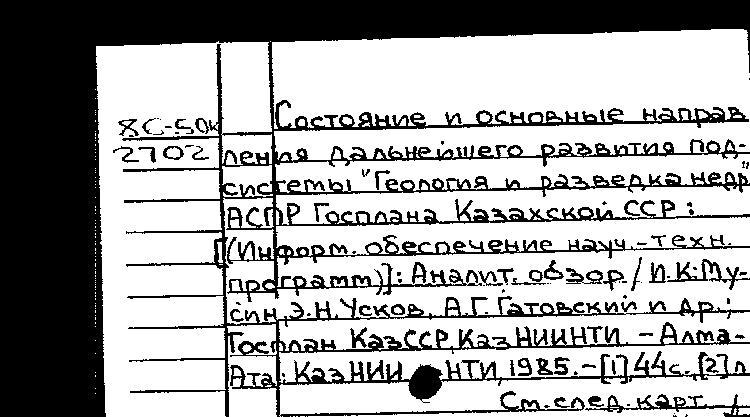 8С-50к
2702
Состояние и основные направ
ления дальнейшего развития под-
системы "Геология и разведка недр"
АСПР Госплана Казахской ССР:
[(Информ. обеспечение науч.-техн.
программ)]: Аналит. обзор / И.К. Му-
син, Э.Н. Усков, А.Г. Гатовский и др.;
Госплан КазССР, КазНИИНТИ. - Алма-
Ата: КазНИИНТИ, 1985. - [1], 44с., [2] л
См. след. карт.